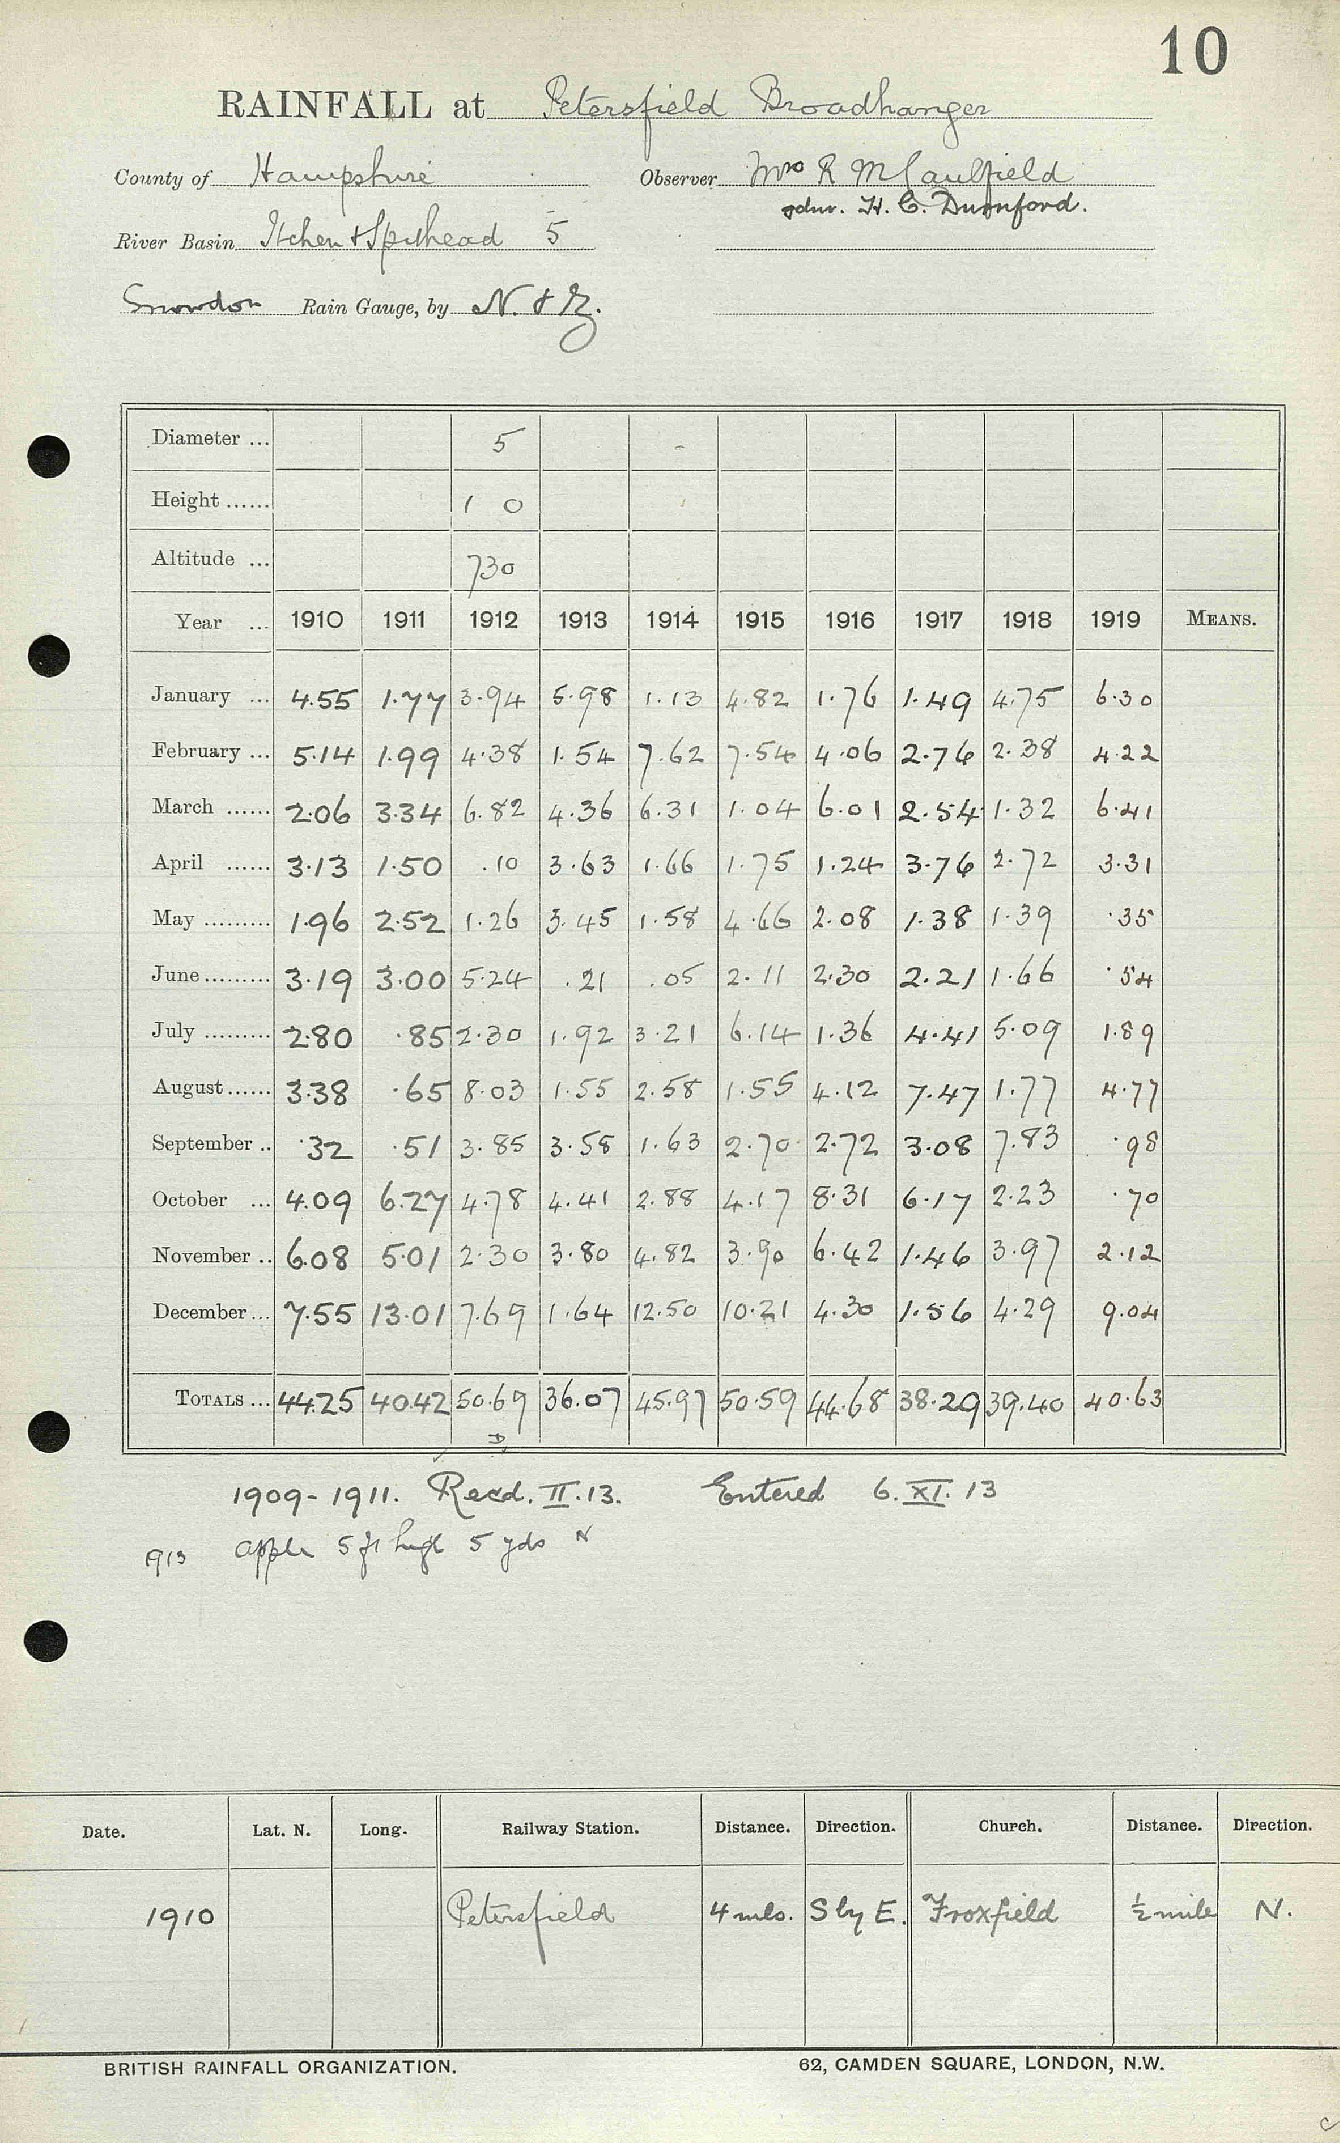 10
RAINFALL at Petersfield Broadhanger
County of Hampshire Observer Mrs R M Caulfield
H. C. Durnford.
River Basin Itchen & Spithead 5
Snowdon Rain Gauge, by N. & Z.
Diameter ... 5
Height ...... 1 0
Altitude ... 730
Year ... 1910 1911 1912 1913 1914 1915 1916 1917 1918 1919 MEANS.
January ... 4.55 1.77 3.94 5.98 1.13 4.82 1.76 1.49 4.75 6.30
February ... 5.14 1.99 4.38 1.54 7.62 7.54 4.06 2.76 2.38 4.22
March ...... 2.06 3.34 6.82 4.36 6.31 1.04 6.01 2.54 1.32 6.41
April ...... 3.13 1.50 .10 3.63 1.66 1.75 1.24 3.76 2.72 3.31
May ......... 1.96 2.52 1.26 3.45 1.58 4.66 2.08 1.38 1.39 .35
June ......... 3.19 3.00 5.24 .21 .05 2.11 2.30 2.21 1.66 .54
July ......... 2.80 .85 2.30 1.92 3.21 6.14 1.36 4.41 5.09 1.89
August ...... 3.38 .65 8.03 1.55 2.58 1.55 4.12 7.47 1.77 4.77
September .. .32 .51 3.85 3.58 1.63 2.70 2.72 3.08 7.83 .98
October ... 4.09 6.27 4.78 4.41 2.88 4.17 8.31 6.17 2.23 .70
November .. 6.08 5.01 2.30 3.80 4.82 3.90 6.42 1.46 3.97 2.12
December ... 7.55 13.01 7.69 1.64 12.50 10.21 4.30 1.56 4.29 9.04
TOTALS ... 44.25 40.42 50.69 36.07 45.97 50.59 44.68 38.29 39.40 40.63
D
1909-1911. Recd. II.13. Entered 6.XI.13
1913 apple 5 ft high 5 yds N
Date. Lat. N. Long. Railway Station. Distance. Direction. Church. Distance. Direction.
1910 Petersfield 4 mls. S by E. Froxfield ½ mile N.
BRITISH RAINFALL ORGANIZATION. 62, CAMDEN SQUARE, LONDON, N.W.